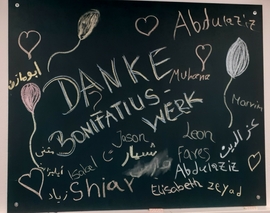 Abdulaziz
ابومازن
DANKE
Muhana
Marvin
BONIFATIUS-
WERK
Jason
Leon
عز الدين
مثنى
شيار
Fares
Isabel
Abdulaziz
زياد
Shiar
Elisabeth
zeyad